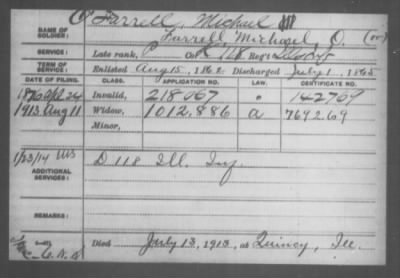 Farrell, Michael
NAME OF SOLDIER: Farrell, Michael, O.
SERVICE: Late rank, P Co. K 118 Reg't Ill Inf
TERM OF SERVICE: Enlisted Aug 15, 1862 Discharged July 1, 1865
DATE OF FILING. CLASS. APPLICATION NO. LAW. CERTIFICATE NO.
1876 Apl 24 Invalid, 218067 " 142769
1913 Aug 11 Widow, 1012.886 a 769269
Minor,
1/23/14
ADDITIONAL SERVICES: D 118 Ill. Inf.
REMARKS:
Died July 13, 1913, at Quincy, Ill.